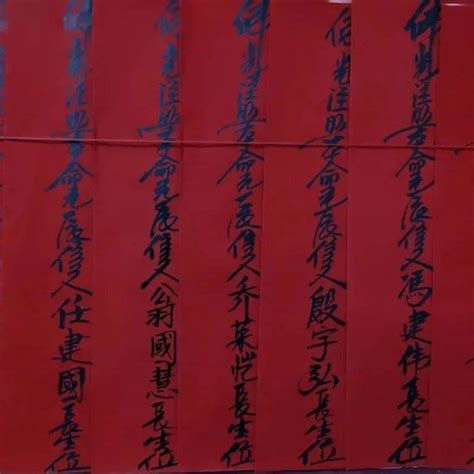 佛光注照本命元辰信人馮建伟長生位
佛光注照本命元辰信人殷宇弘長生位
佛光注照本命元辰信人乔莱恺長生位
佛光注照本命元辰信人翁國慧長生位
佛光注照本命元辰信人任建國長生位